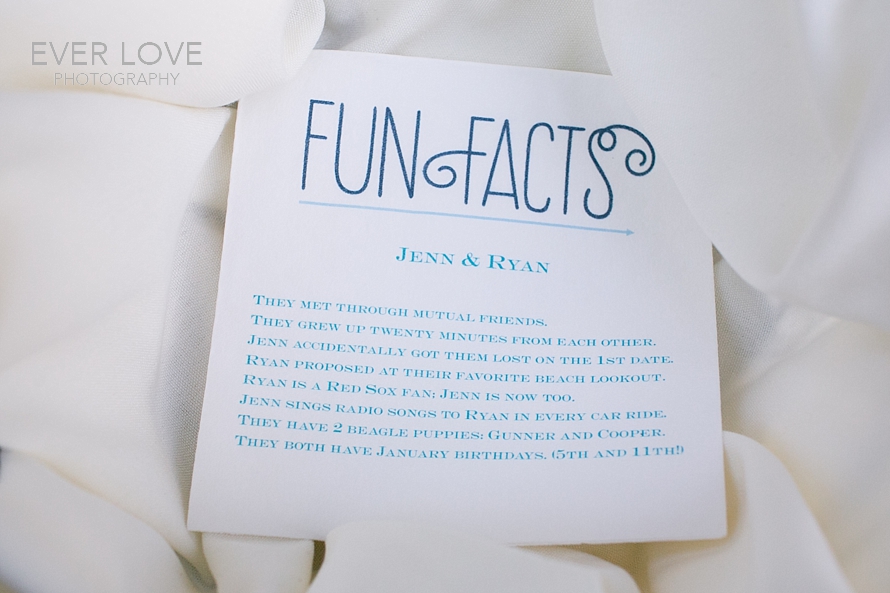 EVER LOVE
PHOTOGRAPHY
FUN FACTS
JENN & RYAN
THEY MET THROUGH MUTUAL FRIENDS.
THEY GREW UP TWENTY MINUTES FROM EACH OTHER.
JENN ACCIDENTALLY GOT THEM LOST ON THE 1ST DATE.
RYAN PROPOSED AT THEIR FAVORITE BEACH LOOKOUT.
RYAN IS A RED SOX FAN; JENN IS NOW TOO.
JENN SINGS RADIO SONGS TO RYAN IN EVERY CAR RIDE.
THEY HAVE 2 BEAGLE PUPPIES: GUNNER AND COOPER.
THEY BOTH HAVE JANUARY BIRTHDAYS. (5TH AND 11TH!)